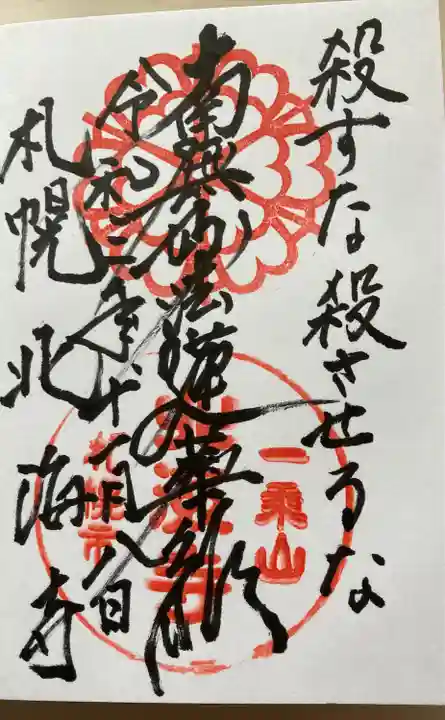 殺すな殺させるな
南無妙法蓮華経
令和二年十一月八日
札幌北海寺
一乗山
札幌市